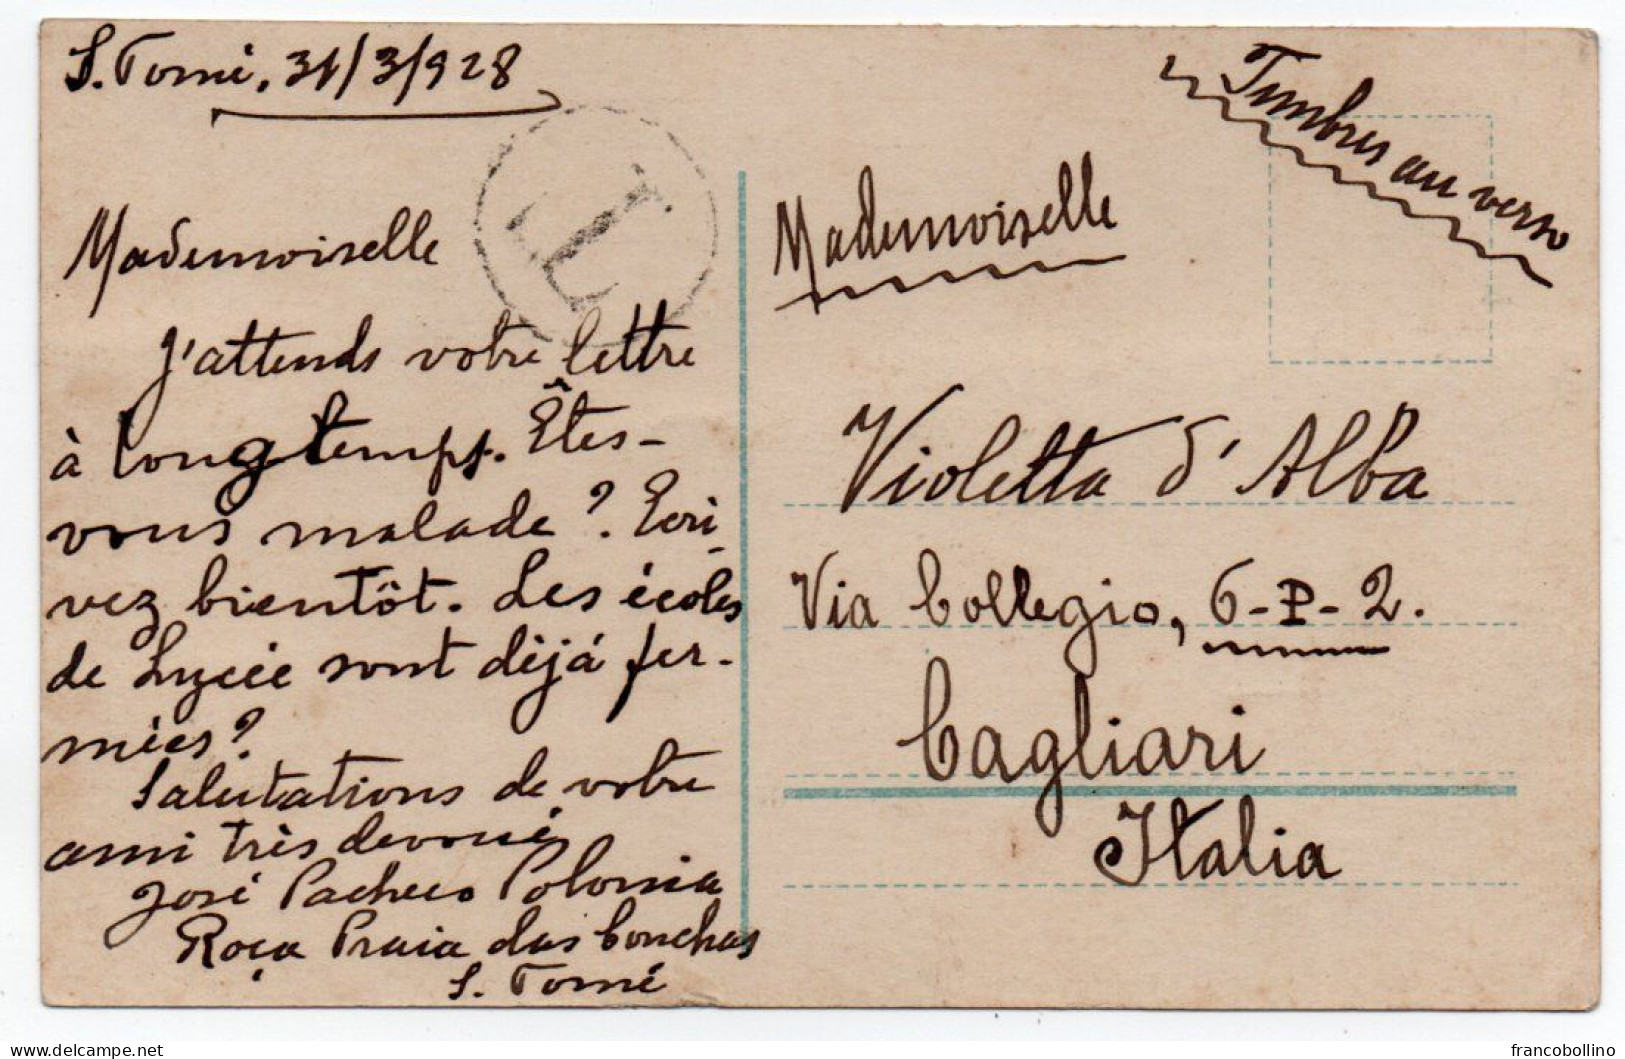 S. Tomé, 31/3/928
T
Mademoiselle
J'attends votre lettre
à longtemps. Êtes-
vous malade? Ecri-
vez bientôt. Les écoles
de Lyceé sont déjá fer-
mées?
Salutations de votre
ami très devoué,
José Pacheco Polonia
Roça Praia das Conchas
S. Tomé
Timbres au verso
Mademoiselle
Violetta d'Alba
Via Collegio, 6-P-2.
Cagliari
Italia
delcampe.net
francobollino